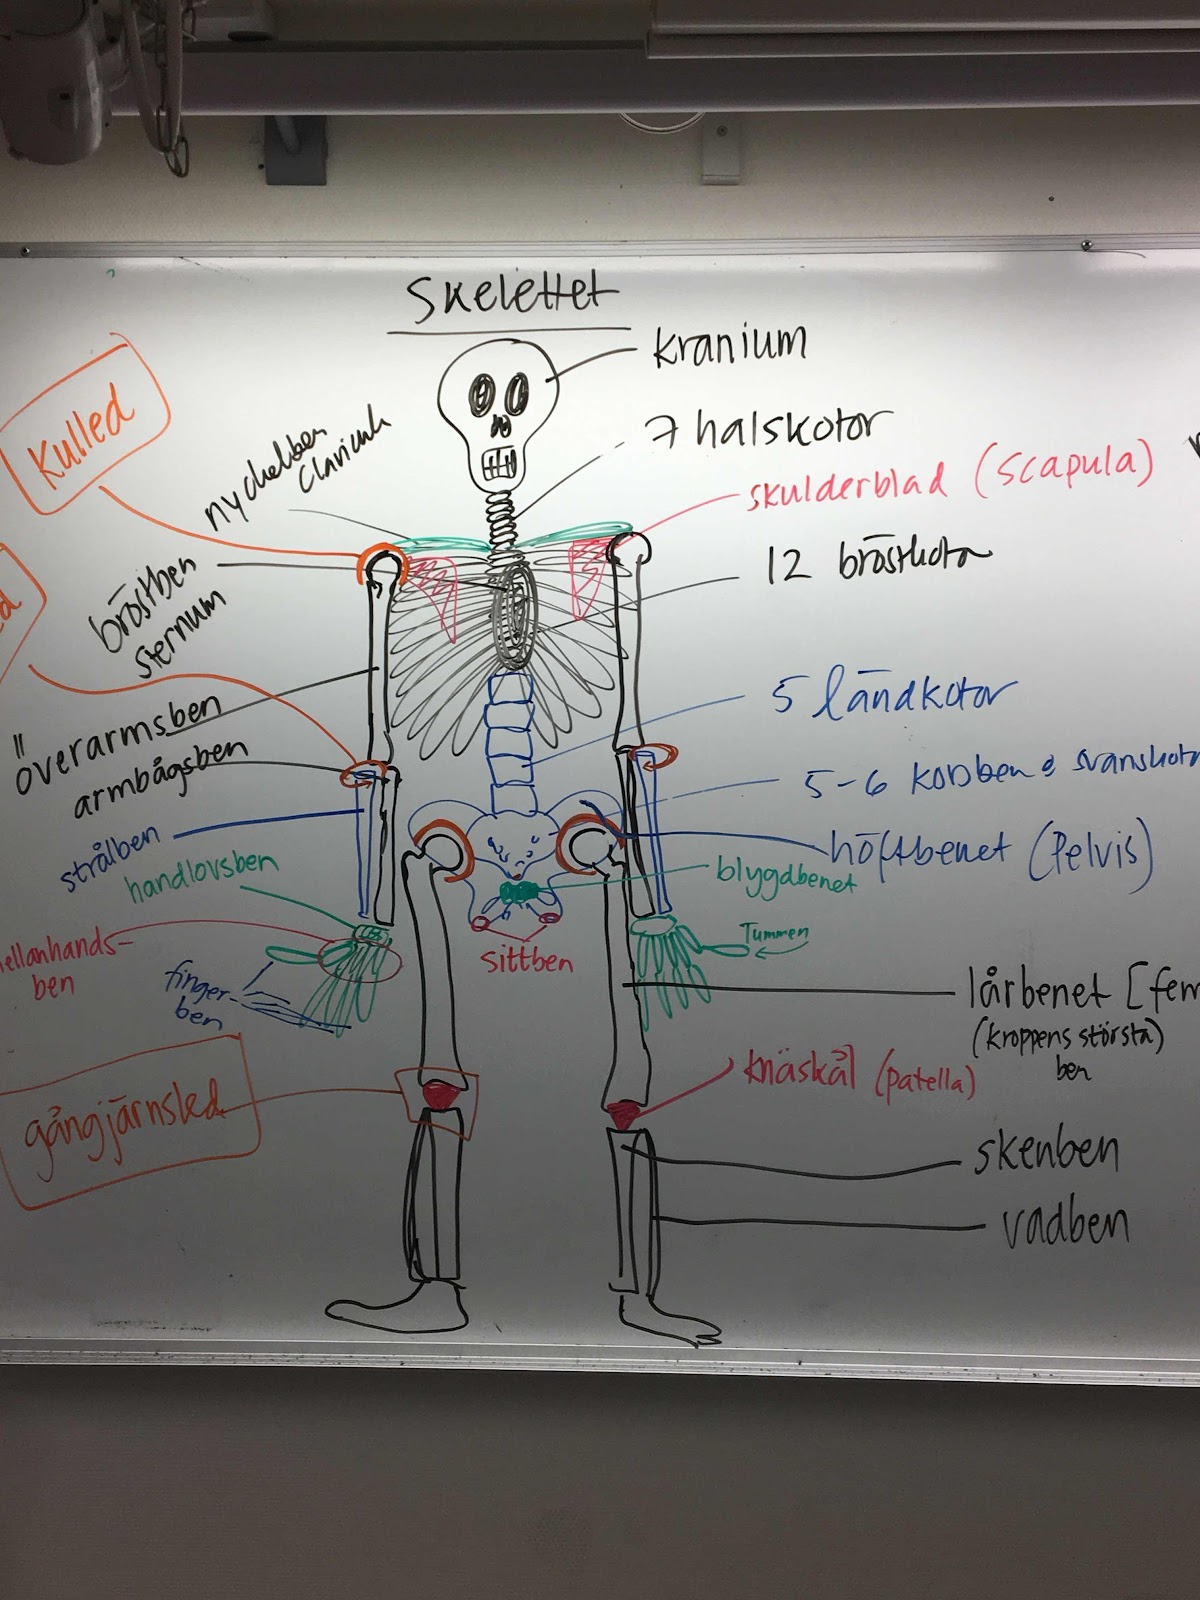 Skelettet
kranium
Kulled
nyckelben
Clavicula
7 halskotor
skulderblad (scapula)
bröstben
sternum
12 bröstkotor
överarmsben
armbågsben
5 ländkotor
5-6 korsben & svanskotor
strålben
höftbenet (Pelvis)
handlovsben
blygdbenet
Tummen
ellanhands-
ben
sittben
finger-
ben
lårbenet [fem
(kroppens största)
ben
knäskål (patella)
gångjärnsled
skenben
vadben